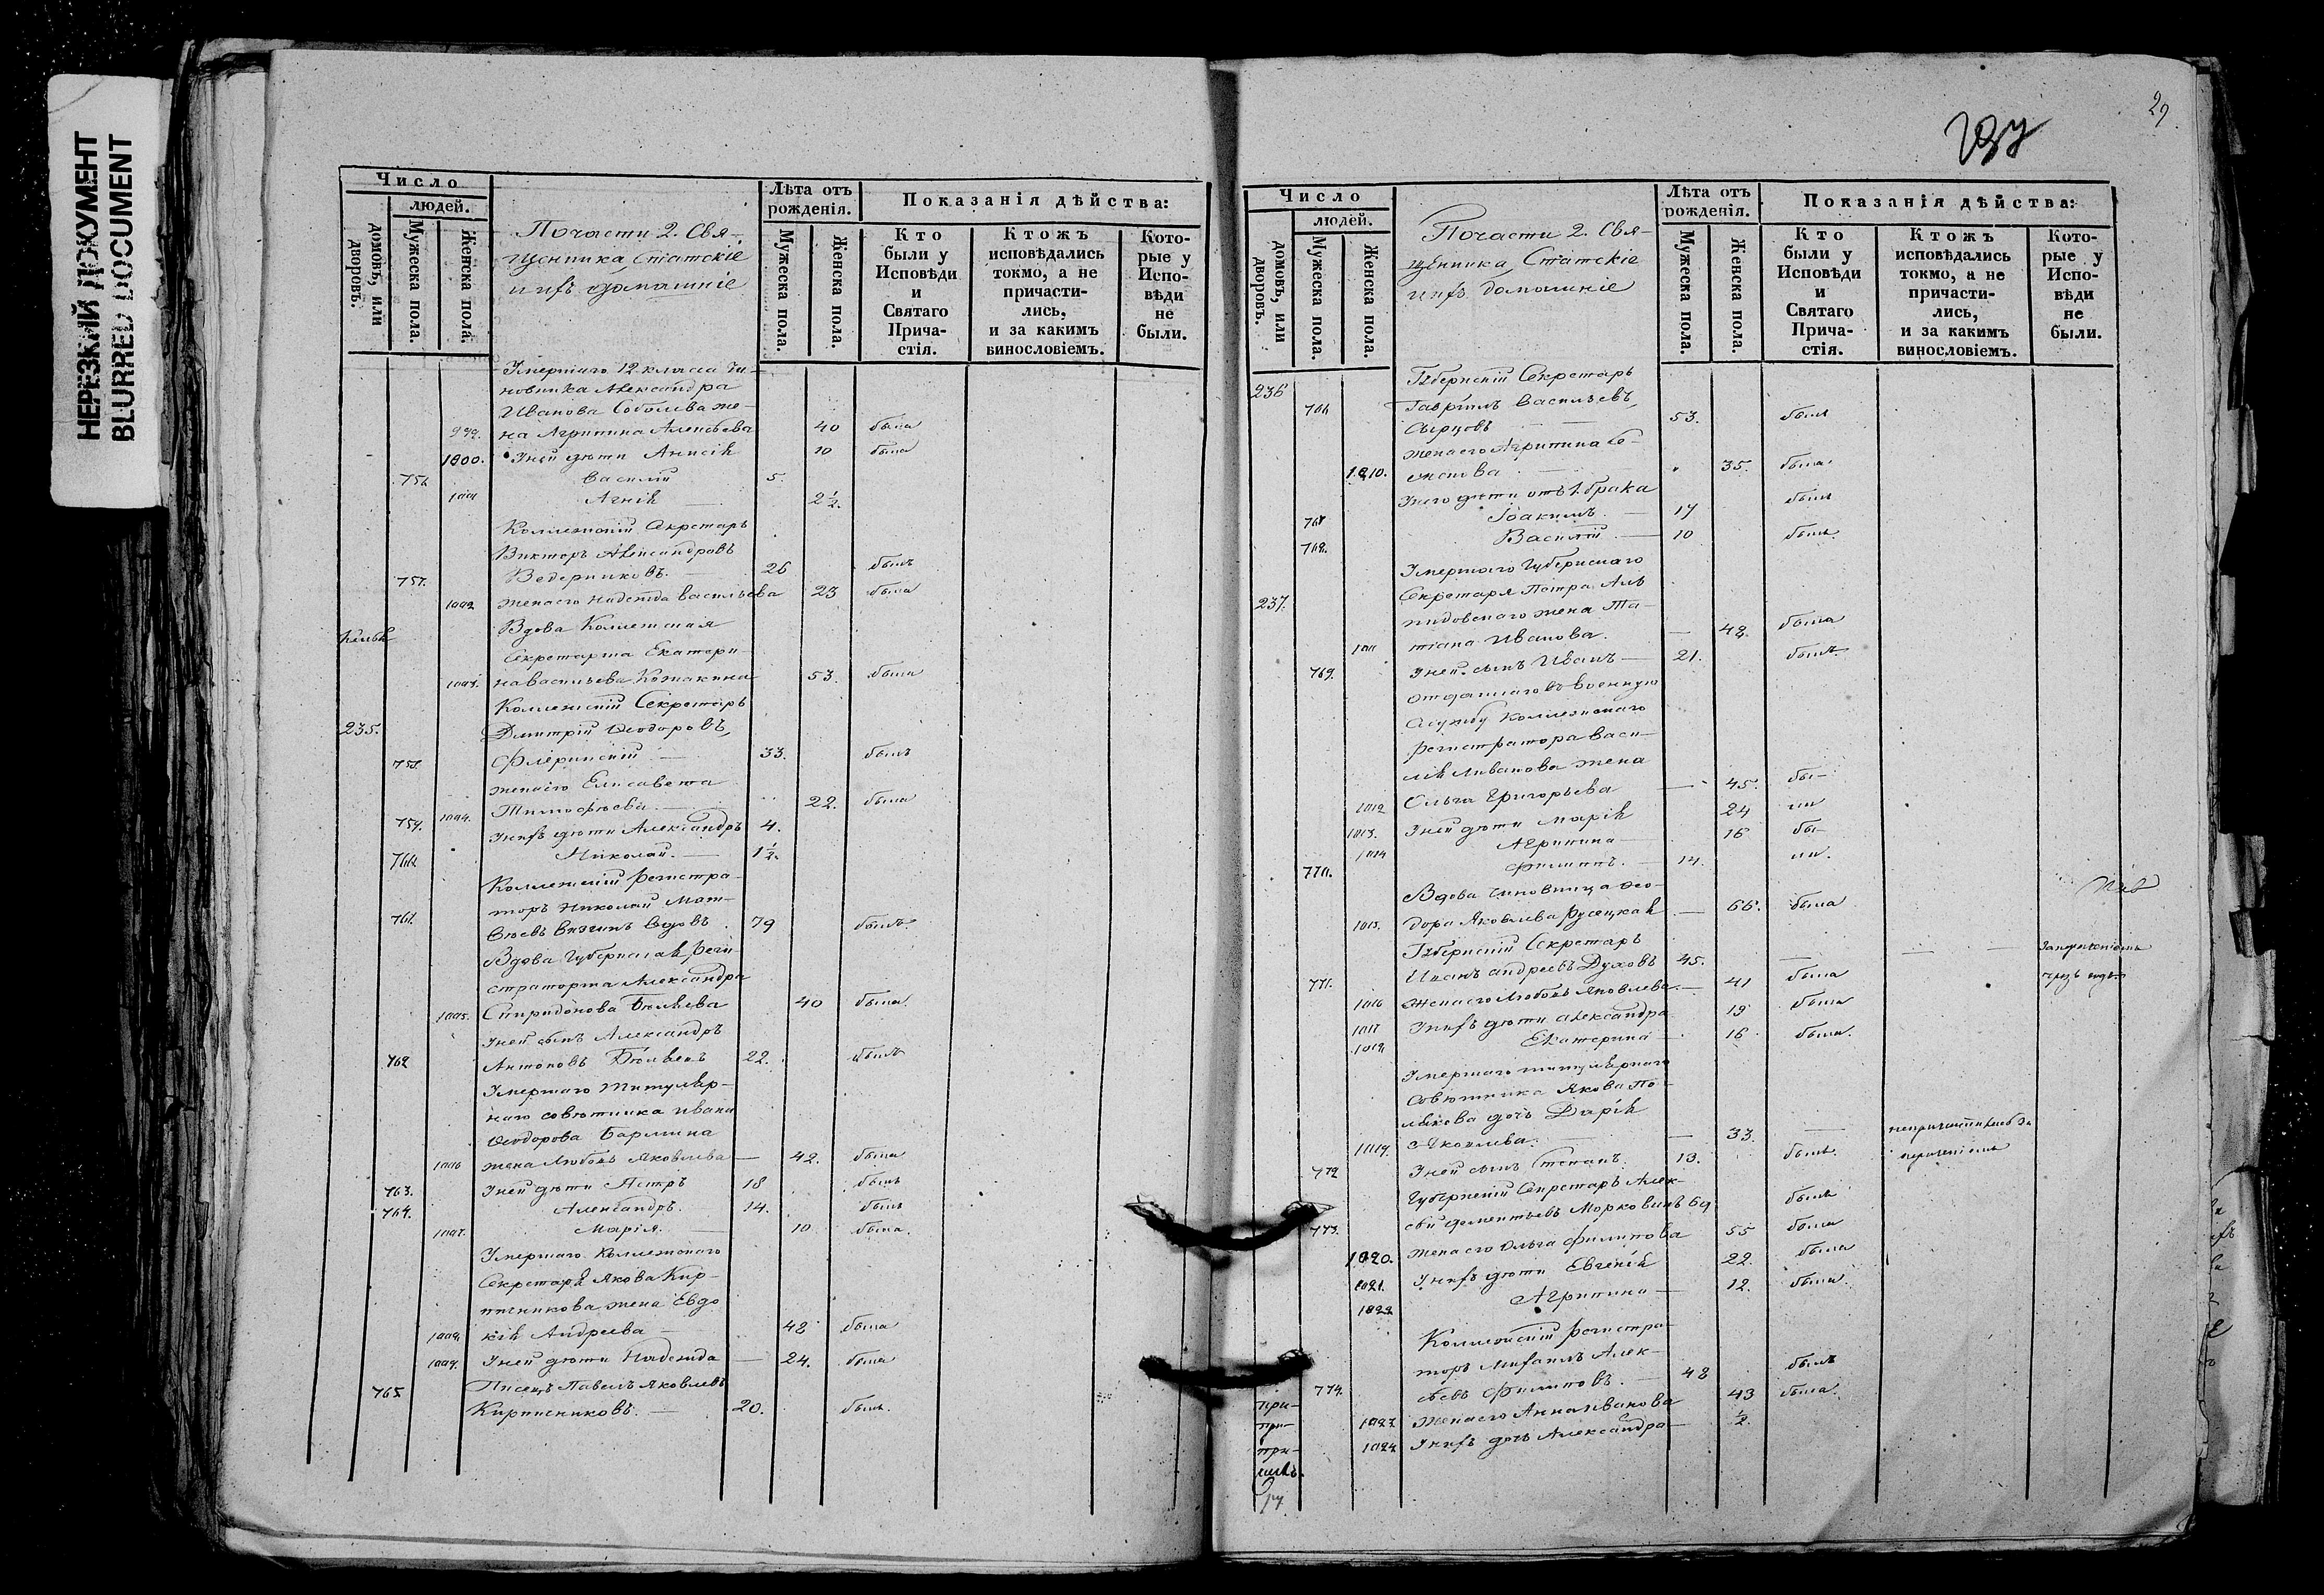 НЕРЕЗКИЙ ДОКУМЕНТ
BLURRED DOCUMENT
Число
людей.
домовъ, или дворовъ.
Мужеска пола.
Женска пола.
По части 2. Свя-
щенника, Статскіе
и ихъ домашніе
Лѣта отъ рожденія.
Мужеска пола.
Женска пола.
Показанія дѣйства:
Кто были у Исповѣди и Святаго Прича-стія.
Ктожъ исповѣдались токмо, а не причасти-лись, и за какимъ винословіемъ.
Кото-рые у Испо-вѣди не были.
Умершаго 12 класса Чи-
новника Александра
Иванова Соболева же-
999. на Агрипина Алексѣева 40 была
1000. У ней дѣти Анисія 10 была
756. Василій 5.
1001 Агнія 2½.
Коллежскій Секретарь
Викторъ Александровъ
757. Ведерниковъ. 26 былъ
1002 жена его Надежда Васильева 23 была
Вдова Коллежская
Секретарша Екатери-
1003. на Васильева Кожакина 53. была
Коллежскій Секретарь
235. Дмитрій Ѳеодоровъ,
758. Флеринскій 33. былъ
жена его Елисавета
1004. Тимофѣева 22. была
759. У нихъ дѣти Александръ 4.
760. Николай. 1½.
Коллежскій Регистра-
торъ Николай Мат-
761. вѣевъ Вдовъ 79 былъ.
Вдова Губернская Реги-
страторша Александра
1005. Спиридонова Бѣляева 40 была.
У ней сынъ Александръ
762 Антоновъ 22. былъ
Умершаго Титуляр-
наго совѣтника Ивана
Ѳеодорова Бармина
1006 жена Любовь Яковлева 42. была
763. У ней дѣти Петръ 18 былъ
764. Александръ. 14. былъ
1007. Марія. 10 была.
Умершаго Коллежскаго
Секретаря Якова Кир-
пичникова жена Евдо
1008. кія Андреева 48 была
1009. У ней дѣти Надежда 24. была
765. Писецъ Павелъ Яковлевъ
Кирпичниковъ. 20. былъ.
29
Число
людей.
домовъ, или дворовъ.
Мужеска пола.
Женска пола.
По части 2. Свя-
щенника, Статскіе
ихъ домашніе
Лѣта отъ рожденія.
Мужеска пола.
Женска пола.
Показанія дѣйства:
Кто были у Исповѣди и Святаго Прича-стія.
Ктожъ исповѣдались токмо, а не причасти-лись, и за какимъ винословіемъ.
Кото-рые у Испо-вѣди не были.
236 Губернскій Секретарь
766 Гавріилъ Васильевъ,
Сырцовъ 53. былъ
жена его Агрипина Се-
1010. менова 35. была.
У него дѣти отъ 1. брака
767 Іоакимъ. 17 былъ
768. Василій 10 былъ.
Умершаго Губернскаго
237. Секретаря Петра
жена Та-
1011 тіана Иванова. 48. была
769. У ней сынъ Иванъ 21. былъ.
Отданнаго въ военную
Службу Коллежскаго
Регистратора Васи-
лія Ливанова жена
1012 Ольга Григорьева 45. бы-
1013. У ней дѣти Марія 24 ли
1014 Агрипина 16 бы-
770. Филиппъ. 14. ли.
Вдова Чиновница Ѳео-
1015. дора Яковлева Русецкая 66. была
Губернскій Секретарь
771. Иванъ Андреевъ Духовъ 45.
1016 Жена его Любовь Яковлева. 41 была
1017 У нихъ дѣти Александра 19 была
1018 Екатерина 16 была.
Умершаго титулярнаго
Совѣтника Якова По-
лякова дочь Дарія
1019. Яковлева. 33.
772 У ней сынъ Степанъ. 13. былъ.
Губернскій Секретарь Алек-
773. сѣй Дементьевъ Морковинъ 69 былъ
1020. жена его Ольга Филипова 55 была
1021. У нихъ дѣти Евгенія 22. была
1022 Агрипина 12. была.
Коллежскій Регистра-
торъ Михаилъ Алек-
774. сѣевъ Филиповъ. 48 былъ
1023. жена его Анна Иванова 43 была.
1024. У нихъ дочь Александра ½.
при-
при-
при-